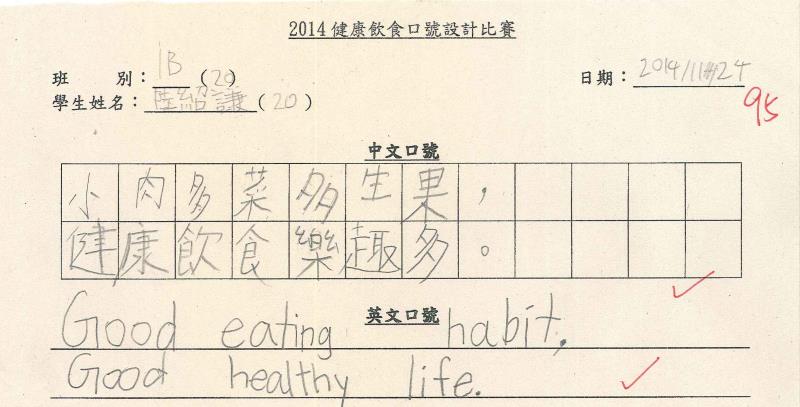 2014健康飲食口號設計比賽
班 別： 1B (20)
日期： 2014/11/24
學生姓名： 陸紹謙 (20)
95
中文口號
小肉多菜多生果，
健康飲食樂趣多。
英文口號
Good eating habit,
Good healthy life.